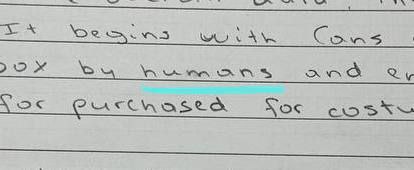 It begins with Cans
box by humans and en
for purchased for costu